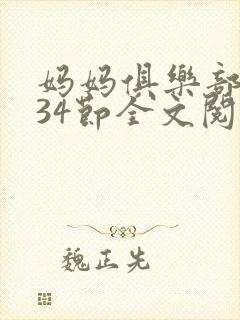 妈妈俱樂部
34節全文閱
魏正先